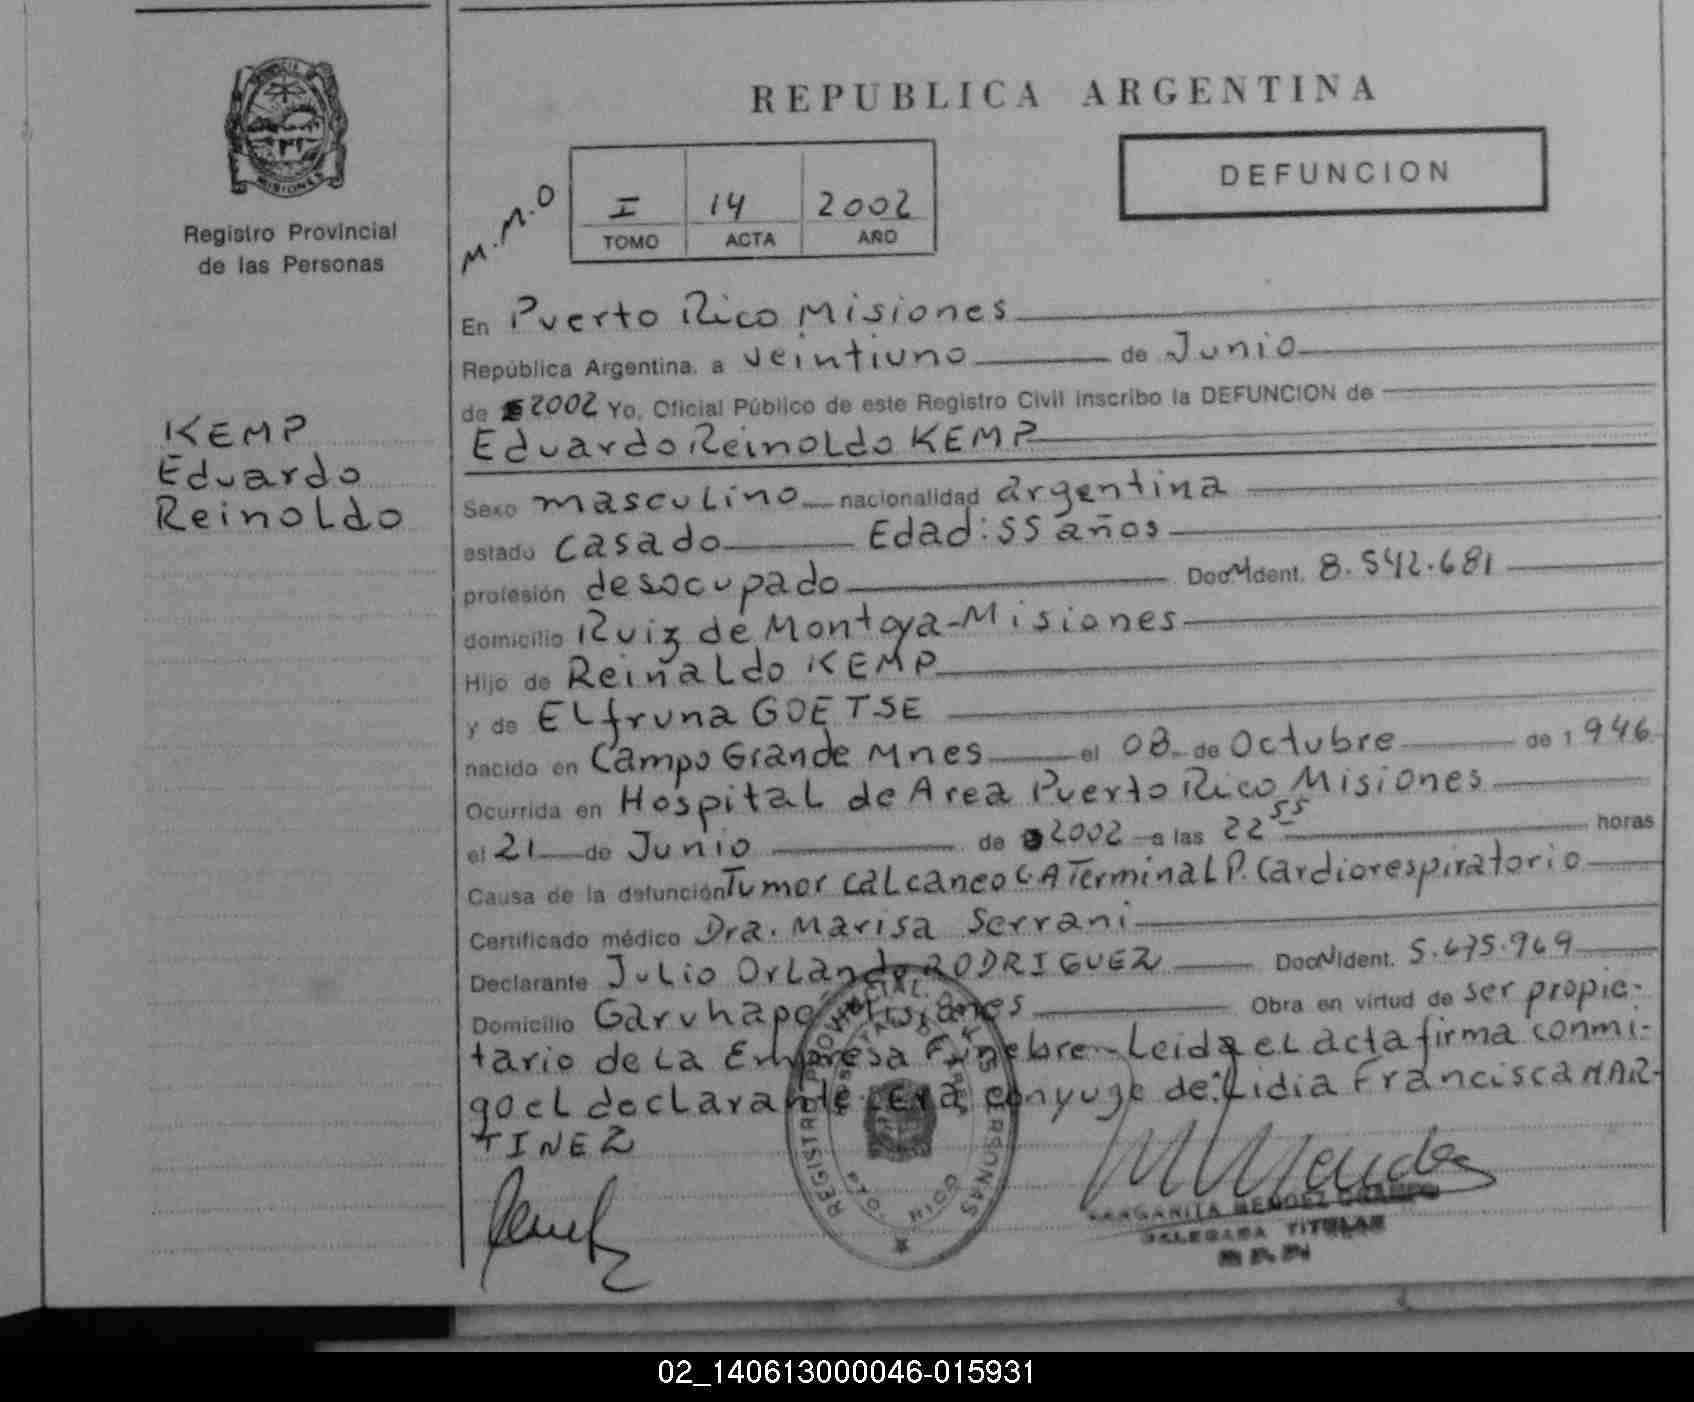 REPUBLICA ARGENTINA
PROVINCIA DE MISIONES
Registro Provincial
de las Personas
M.M.O
I 14 2002
TOMO ACTA AÑO
DEFUNCION
KEMP
Eduardo
Reinoldo
En Puerto Rico Misiones
República Argentina, a veintiuno de Junio
de 2002 Yo, Oficial Público de este Registro Civil inscribo la DEFUNCION de
Eduardo Reinoldo KEMP
Sexo masculino nacionalidad argentina
estado casado Edad: 55 años
profesión desocupado Doc. Ident. 8.542.681
domicilio Ruiz de Montoya - Misiones
Hijo de Reinaldo KEMP
y de Elfruna GOETSE
nacido en Campo Grande Mnes el 08 de Octubre de 1946
Ocurrida en Hospital de Area Puerto Rico Misiones
el 21 de Junio de 2002 a las 22 55 horas
Causa de la defunción Tumor calcaneo C.A Terminal P. Cardiorespiratorio
Certificado médico Dra. Marisa Serrani
Declarante Julio Orlando RODRIGUEZ Doc. Ident. 5.675.969
Domicilio Garuhapé Misiones Obra en virtud de ser propie-
tario de la Empresa Fúnebre - Leida el acta firma conmi-
go el declarante. Era conyuge de: Lidia Francisca MAR-
TINEZ
REGISTRO PROVINCIAL DE LAS PERSONAS
PTO. RICO
MARGARITA MENDEZ OCAMPO
DELEGADA TITULAR
R.P.P.
02_140613000046-015931